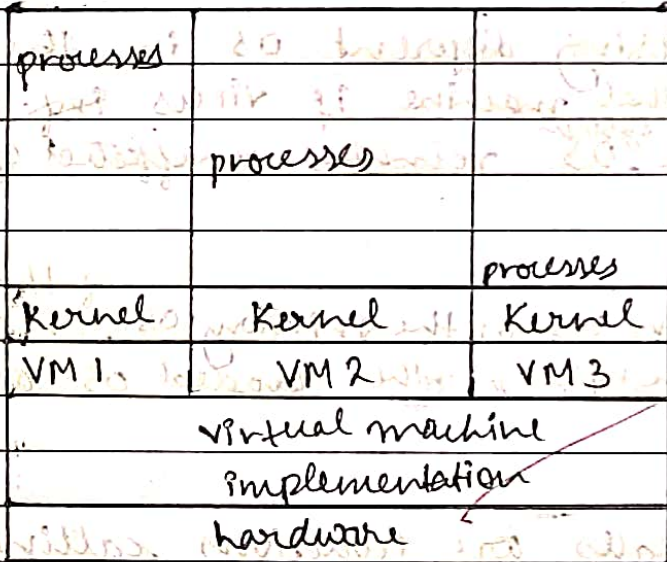 processes
processes
processes
Kernel Kernel Kernel
VM 1 VM 2 VM 3
virtual machine
implementation
hardware